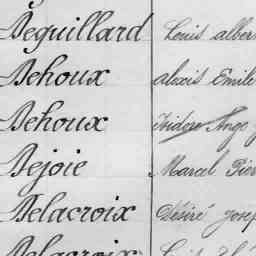 Deguillard Louis
Dehoux alexis Emile
Dehoux Isidore Ange
Dejoie Marcel
Delacroix Désiré
Delacroix